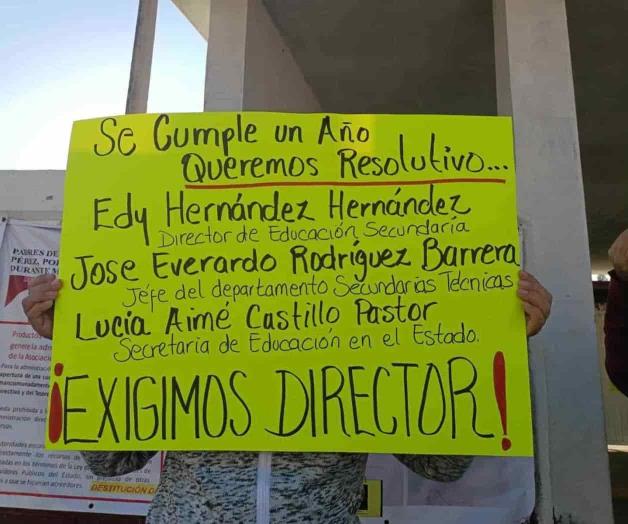 Se Cumple un Año
Queremos Resolutivo...
Edy Hernández Hernández
Director de Educación Secundaria
Jose Everardo Rodríguez Barrera
Jefe del departamento Secundarias Técnicas
Lucía Aimé Castillo Pastor
Secretaria de Educación en el Estado.
¡EXIGIMOS DIRECTOR!
PADRES DE
PÉREZ, POR
DURANTE
Productos
genere la adm
de la Asociació
DESTITUCIÓN D